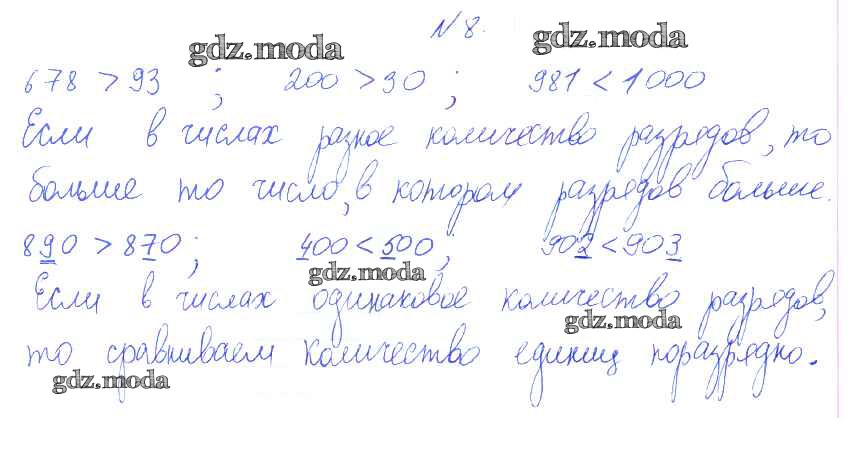 N 8.
gdz.moda gdz.moda
678 > 93 ; 200 > 30 ; 981 < 1000
Если в числах разное количество разрядов, то
больше то число, в котором разрядов больше.
890 > 870; 400 < 500; 902 < 903
gdz.moda
Если в числах одинаковое количество разрядов,
gdz.moda
то сравниваем количество единиц поразрядно.
gdz.moda